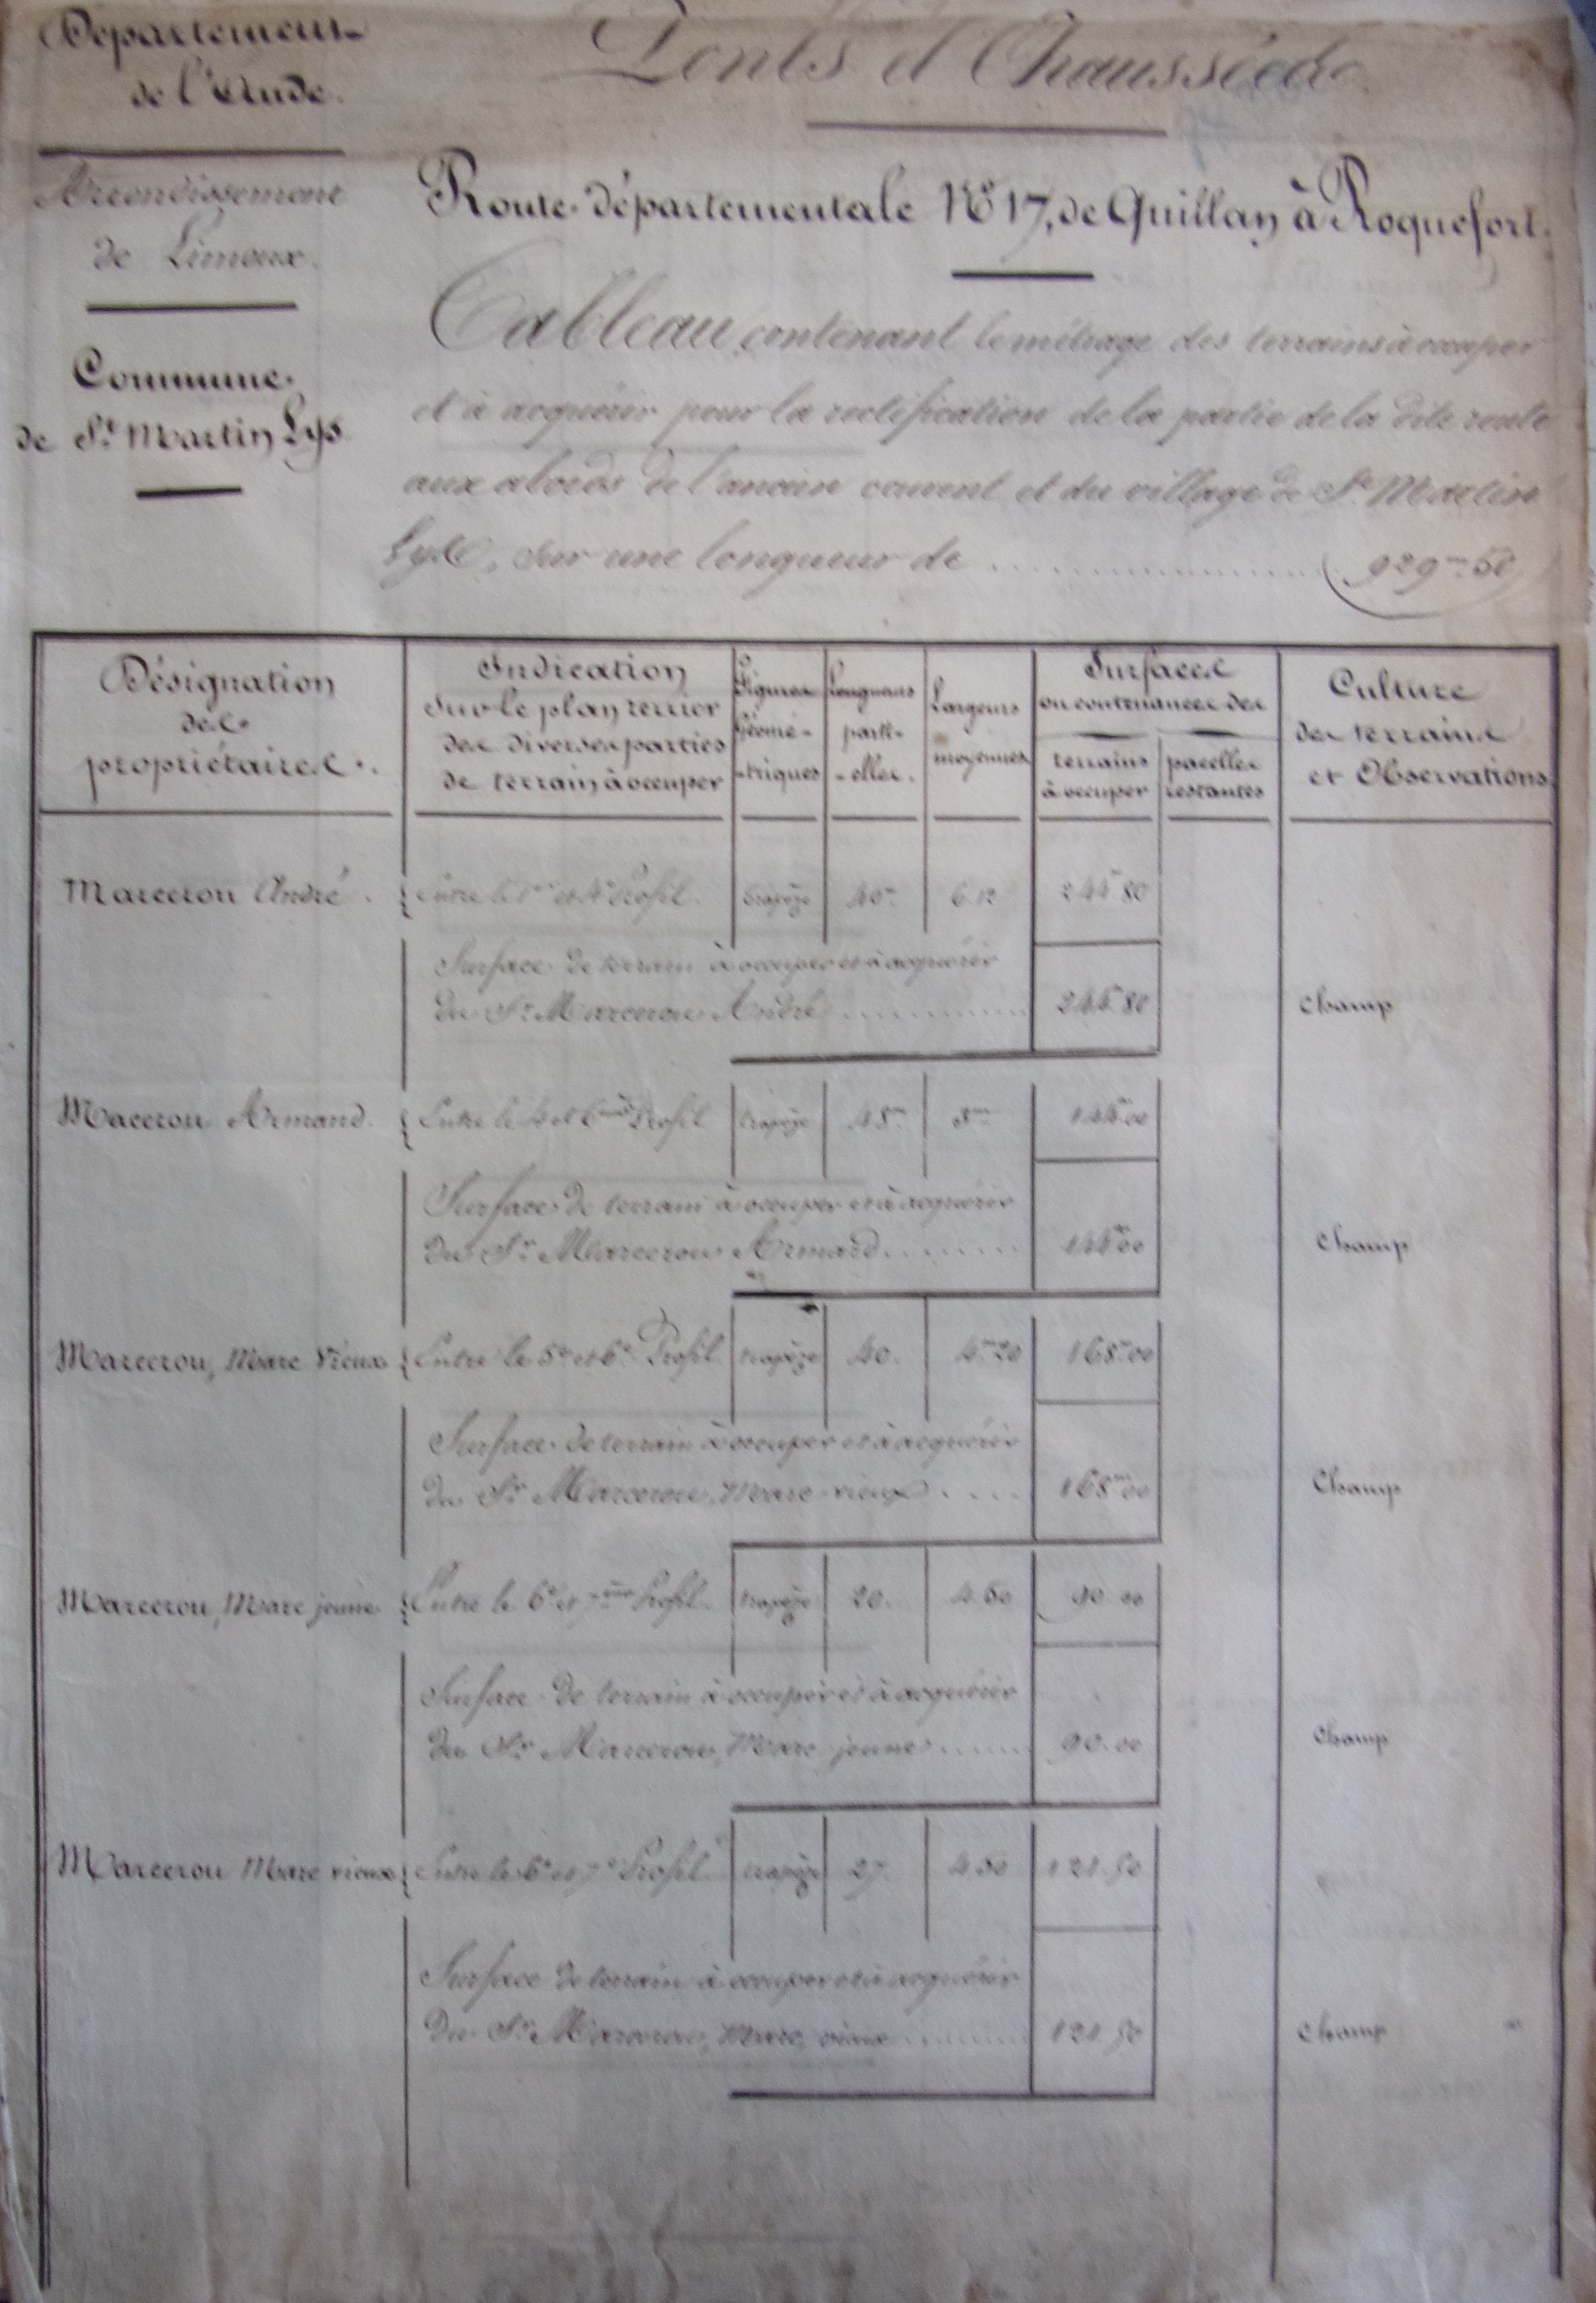 Département
de l'Aude.
Ponts et Chaussées
Arrondissement
de Limoux.
Route départementale No 17, de Quillan à Roquefort.
Commune
de St Martin Lys
Tableau contenant le métrage des terrains à occuper
et à acquérir pour la rectification de la partie de la dite route
aux abords de l'ancien couvent et du village de St Martin
Lys, sur une longueur de .................... (929m.50)
Désignation
des
propriétaires.
Indication
sur le plan terrier
des diverses parties
de terrain à occuper
Figures
Géomé-
-triques
Longueurs
parti-
-elles.
Largeurs
moyennes
Surfaces
ou contenances des
terrains
à occuper
parcelles
restantes
Culture
des terrains
et Observations
Marcerou André. { Entre le 1er et 4e Profil. trapèze 40m 6.12 244m80
Surface de terrain à occuper et à acquérir
du Sr Marcerou André ............ 244m80 Champ
Macerou Armand. { Entre le 4 et 6me Profil trapèze 48m 3m 144m00
Surface de terrain à occuper et à acquérir
du Sr Marcerou Armand ........ 144m00 Champ
Marcerou, Marc Vieux { Entre le 5e et 6e Profil trapèze 40. 4m20 168m00
Surface de terrain à occuper et à acquérir
du Sr Marcerou, Marc vieux .... 168m00 Champ
Marcerou, Marc jeune { Entre le 6e et 7me Profil. trapèze 20. 4.50 90.00
Surface de terrain à occuper et à acquérir
du Sr Marcerou, Marc jeune ...... 90.00 Champ
Marcerou Marc vieux { Entre le 6e et 7e Profil trapèze 27. 4.50 121.50
Surface de terrain à occuper et à acquérir
du Sr Marcerou, Marc, vieux ........ 121.50 Champ